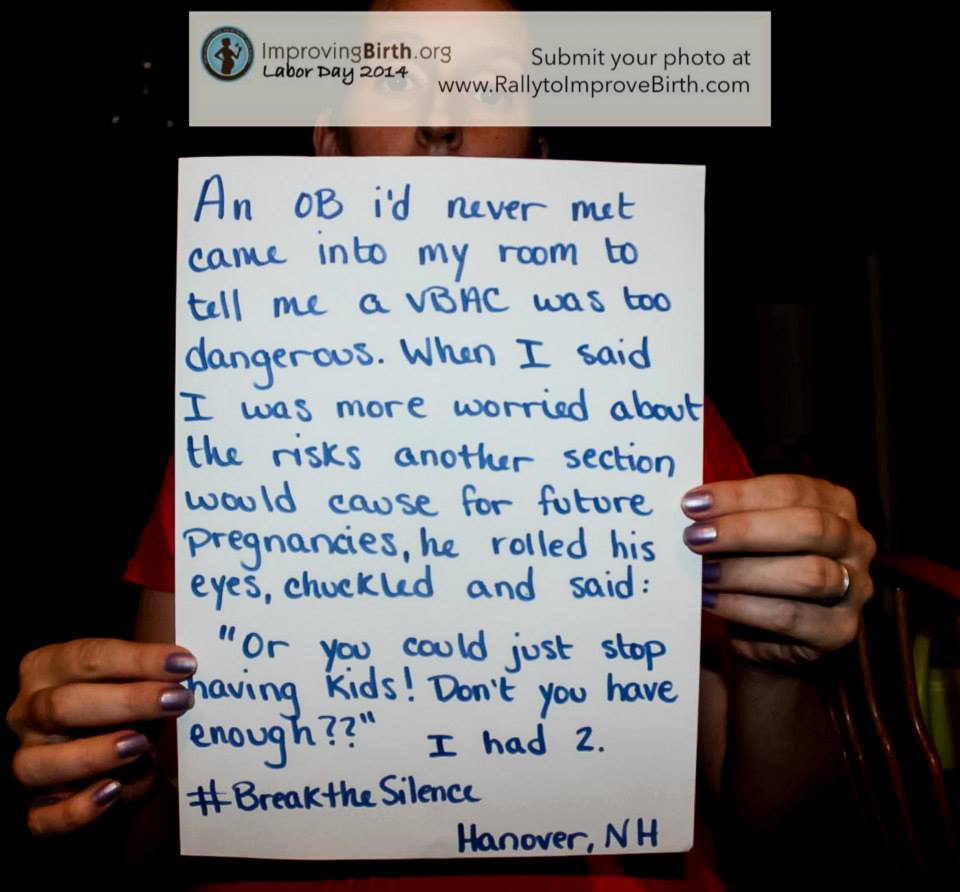 ImprovingBirth.org
Labor Day 2014
Submit your photo at
www.RallytoImproveBirth.com
An OB i'd never met
came into my room to
tell me a VBAC was too
dangerous. When I said
I was more worried about
the risks another section
would cause for future
pregnancies, he rolled his
eyes, chuckled and said:
"Or you could just stop
having kids! Don't you have
enough??" I had 2.
#BreaktheSilence
Hanover, NH